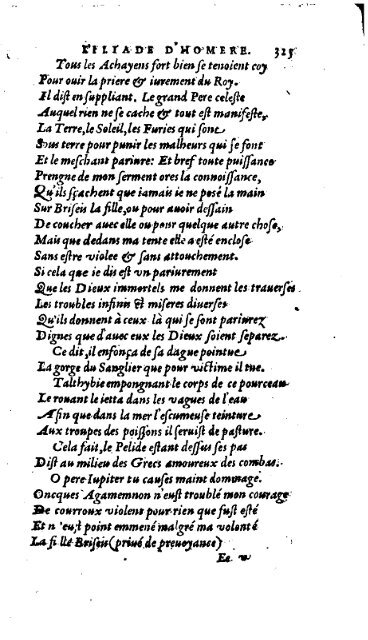 L'ILIADE D'HOMERE. 325
Tous les Achayens fort bien se tenoient coy
Pour ouir la priere & iurement du Roy.
Il dist en suppliant. Le grand Pere celeste
Auquel rien ne se cache & tout est manifeste,
La Terre, le Soleil, les Furies qui sont
Sous terre pour punir les malheurs qui se font
Et le meschant pariure: Et bref toute puissance
Prengne de mon serment ores la connoissance,
Qu'ils sçachent que iamais ie ne posé la main
Sur Briseis la fille, ou pour auoir dessain
De coucher auec elle ou pour quelque autre chose,
Mais que dedans ma tente elle a esté enclose
Sans estre violee & sans attouchement.
Si cela que ie dis est vn pariurement
Que les Dieux immortels me donnent les trauerses
Les troubles infinis & miseres diuerses
Qu'ils donnent à ceux là qui se sont pariurez
Dignes que d'auec eux les Dieux soient separez.
Ce dit, il enfonça de sa dague pointue
La gorge du Sanglier que pour victime il tue.
Talthybie empongnant le corps de ce pourceau
Le rouant le ietta dans les vagues de l'eau
Afin que dans la mer l'escumeuse teinture
Aux troupes des poissons il seruist de pasture.
Cela fait, le Pelide estant dessus ses pas
Dist au milieu des Grecs amoureux des combas.
O pere Iupiter tu causes maint dommage.
Oncques Agamemnon n'eust troublé mon courage
De courroux violent pour rien que fust esté
Et n'eust point emmené malgré ma volonté
La fille Briseis (priué de preuoyance)
Ee v